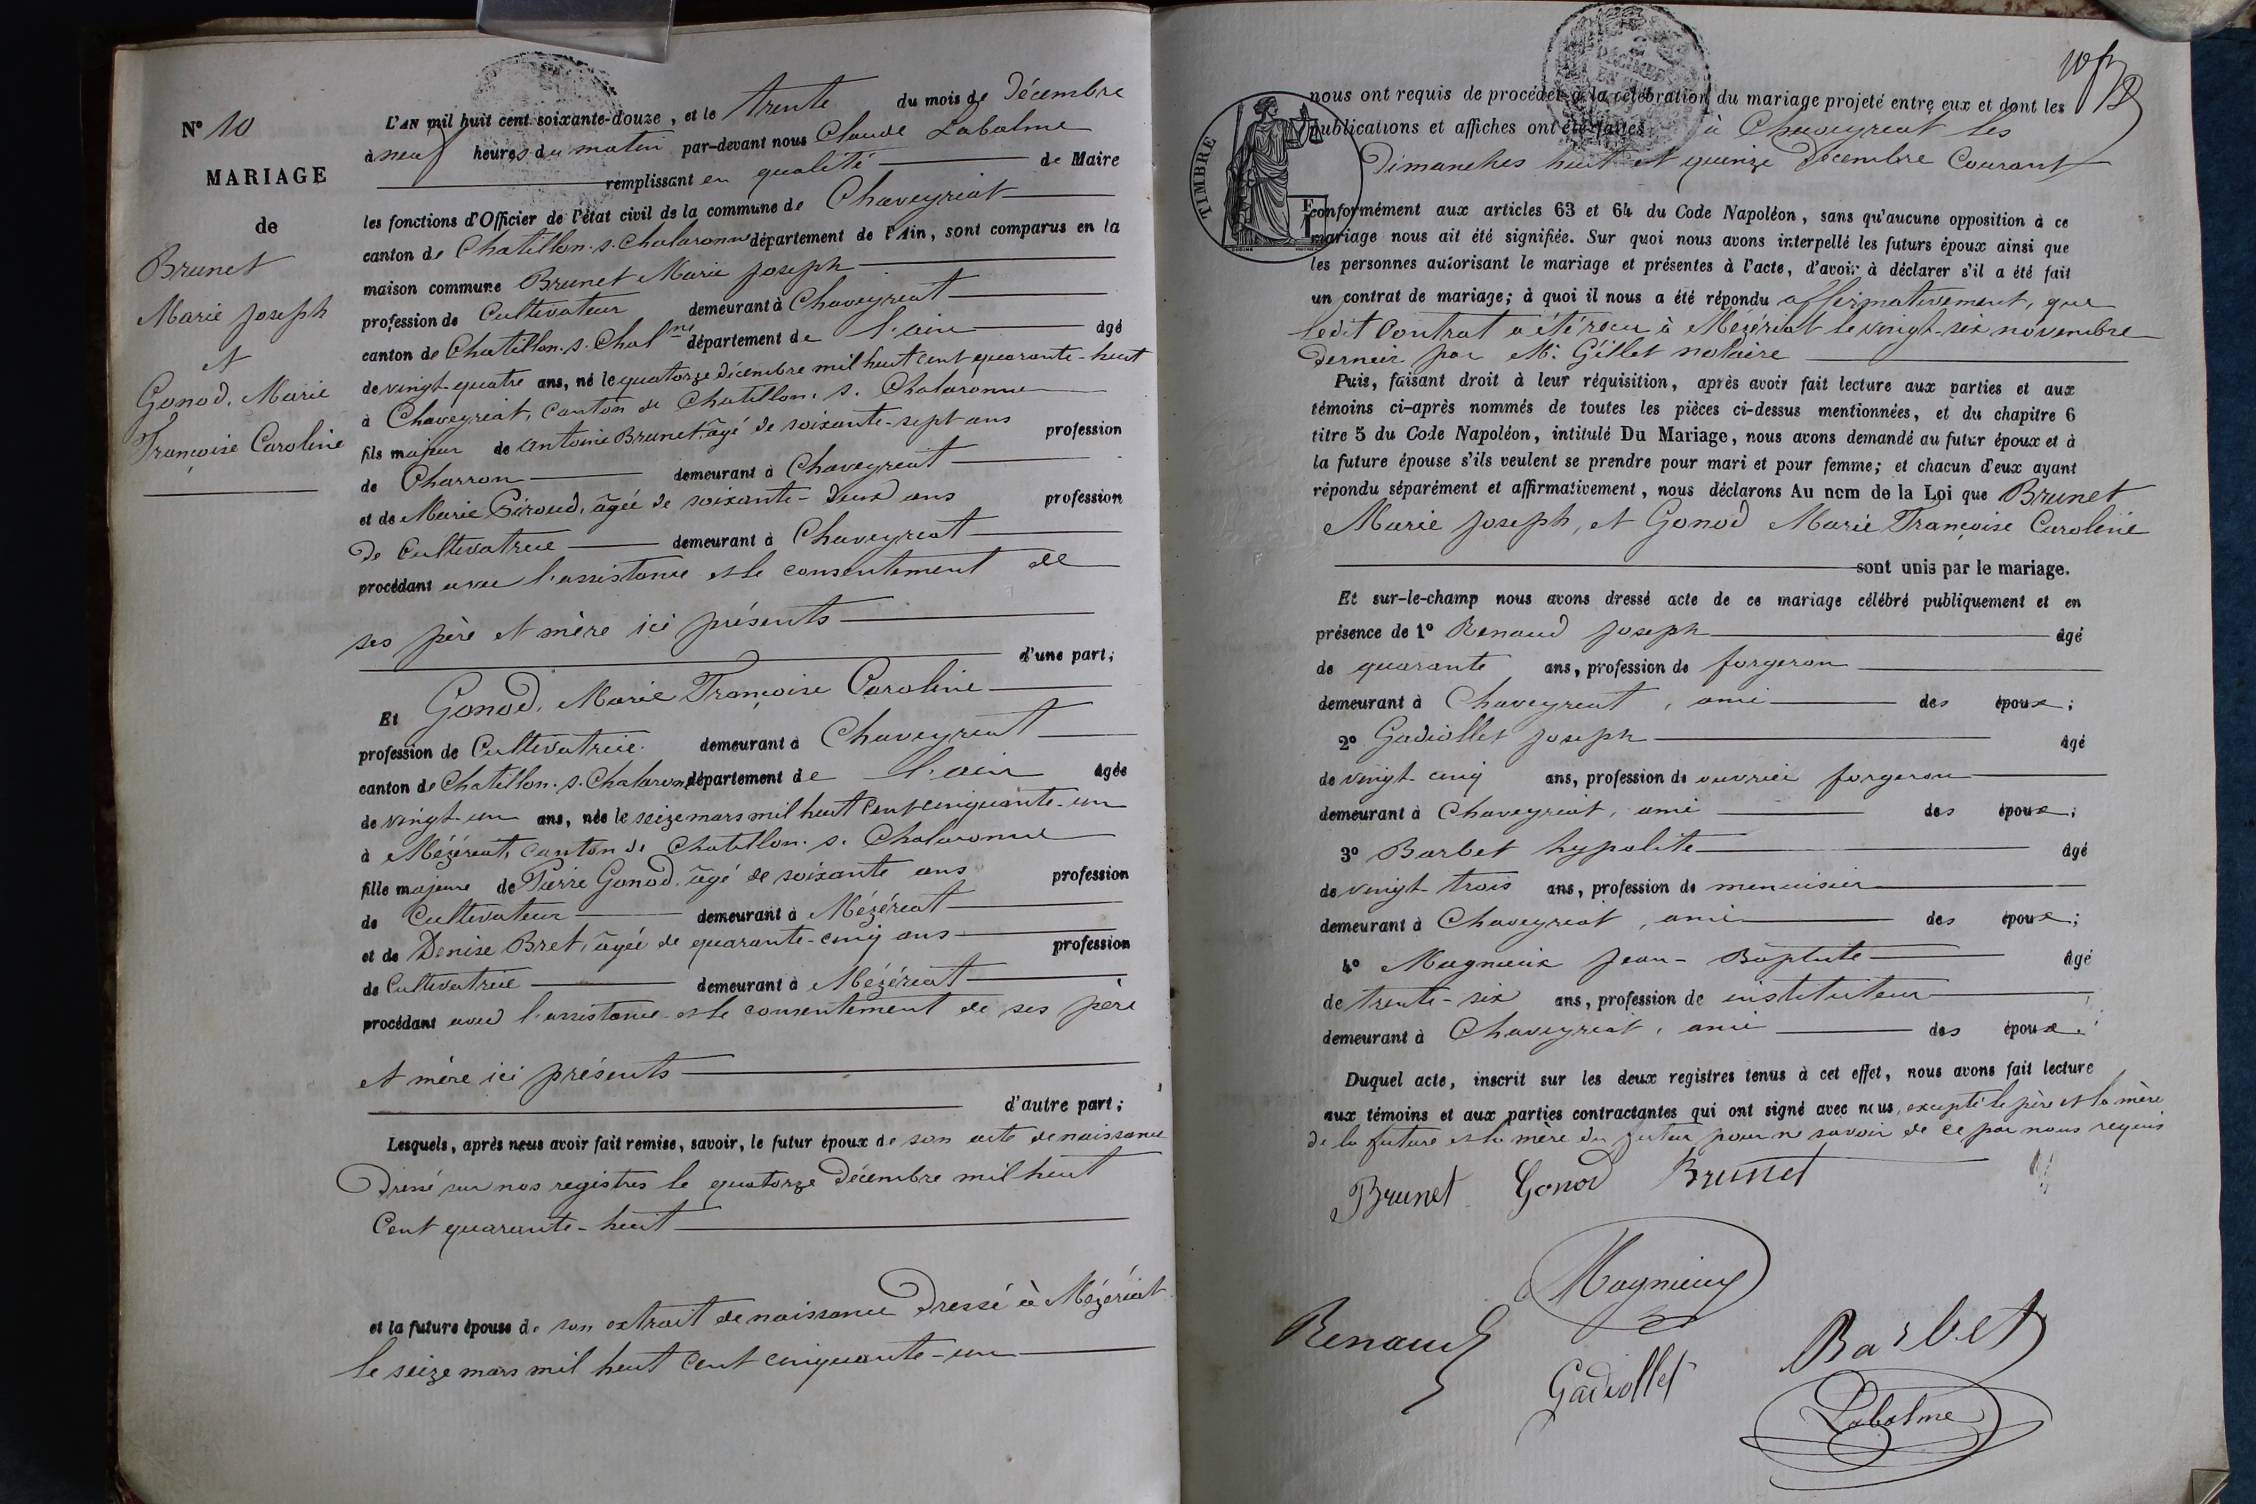 N° 10
MARIAGE
de
Brunet
Marie Joseph
et
Gonod, Marie
Françoise Caroline
L'AN mil huit cent soixante-douze, et le trente du mois de Décembre
à neuf heures du matin par-devant nous Claude Labalme
remplissant en qualité de Maire
les fonctions d'Officier de l'état civil de la commune de Chaveyriat
canton de Chatillon-s-Chalaronne département de l'Ain, sont comparus en la
maison commune Brunet Marie Joseph
profession de Cultivateur demeurant à Chaveyriat
canton de Chatillon-s-Chal^ne département de l'ain âgé
de vingt-quatre ans, né le quatorze décembre mil huit cent quarante-huit
à Chaveyriat, canton de Chatillon. s. Chalaronne
fils majeur de antoine Brunet, âgé de soixante-sept ans profession
de Charron demeurant à Chaveyriat
et de Marie Piroud, âgée de soixante-deux ans profession
De Cultivatrice demeurant à Chaveyriat
procédant avec l'assistance et le consentement de
ses père et mère ici présents
d'une part;
Et Gonod, Marie Françoise Caroline
profession de Cultivatrice demeurant à Chaveyriat
canton de Chatillon-s-Chalaronne département de l'ain âgée
de vingt-un ans, née le seize mars mil huit cent cinquante-un
à Mézériat, canton de Chatillon. s. Chalaronne
fille majeure de Pierre Gonod, âgé de soixante ans profession
de Cultivateur demeurant à Mézériat
et de Denise Bret, âgée de quarante-cinq ans profession
de Cultivatrice demeurant à Mézériat
procédant avec l'assistance et le consentement de ses père
et mère ici présents
d'autre part;
Lesquels, après nous avoir fait remise, savoir, le futur époux de son acte de naissance
Dressé sur nos registres le quatorze Décembre mil huit
Cent quarante-huit
et la future épouse de son extrait de naissance Dressé à Mézériat
le seize mars mil huit cent cinquante-un
TIMBRE
nous ont requis de procéder à la célébration du mariage projeté entre eux et dont les
publications et affiches ont été faites à Chaveyriat les
Dimanches huit et quinze Décembre Courant
conformément aux articles 63 et 64 du Code Napoléon, sans qu'aucune opposition à ce
mariage nous ait été signifiée. Sur quoi nous avons interpellé les futurs époux ainsi que
les personnes autorisant le mariage et présentes à l'acte, d'avoir à déclarer s'il a été fait
un contrat de mariage; à quoi il nous a été répondu affirmativement, que
ledit Contrat a été reçu à Mézériat le vingt-six novembre
Dernier par M. Gillet notaire
Puis, faisant droit à leur réquisition, après avoir fait lecture aux parties et aux
témoins ci-après nommés de toutes les pièces ci-dessus mentionnées, et du chapitre 6
titre 5 du Code Napoléon, intitulé Du Mariage, nous avons demandé au futur époux et à
la future épouse s'ils veulent se prendre pour mari et pour femme; et chacun d'eux ayant
répondu séparément et affirmativement, nous déclarons Au nom de la Loi que Brunet
Marie Joseph, et Gonod Marie Françoise Caroline
sont unis par le mariage.
Et sur-le-champ nous avons dressé acte de ce mariage célébré publiquement et en
présence de 1° Renaud Joseph âgé
de quarante ans, profession de forgeron
demeurant à Chaveyriat, ami des époux;
2° Gadiollet Joseph âgé
de vingt cinq ans, profession de ouvrier forgeron
demeurant à Chaveyriat, ami des époux;
3° Barbet hypolite âgé
de vingt-trois ans, profession de menuisier
demeurant à Chaveyriat, ami des époux;
4° Magnieux Jean-Baptiste âgé
de trente-six ans, profession de instituteur
demeurant à Chaveyriat, ami des époux.
Duquel acte, inscrit sur les deux registres tenus à cet effet, nous avons fait lecture
aux témoins et aux parties contractantes qui ont signé avec nous, excepté le père et la mère
de la future et la mère du futur pour ne savoir de ce par nous requis
Brunet Gonod Brunet
Magnieux
Renaud
Barbet
Gadiollet
Labalme